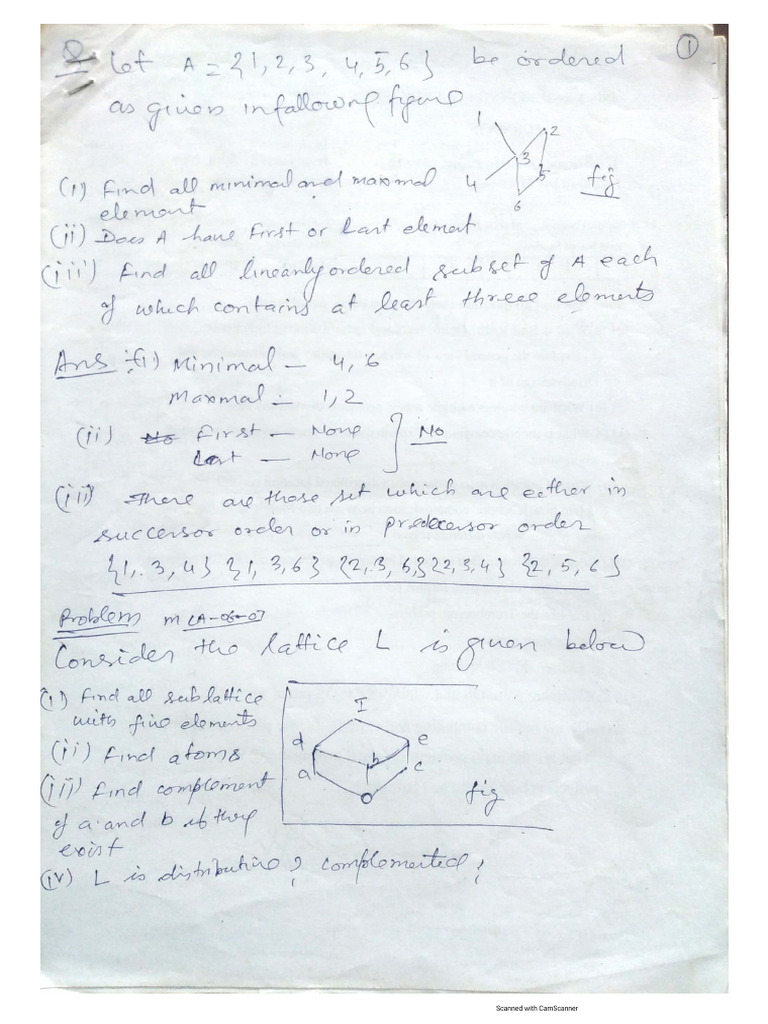 Q. Let A = {1, 2, 3, 4, 5, 6} be ordered
①
as given in following figure
1
2
3
4
5
6
fig
(i) Find all minimal and maximal
element
(ii) Does A have First or Last element
(iii) Find all linearly ordered subset of A each
of which contains at least threee elements
Ans :- (i) Minimal — 4, 6
Maxmal — 1, 2
(ii) No First — None
Last — None
No
(iii) There are those set which are either in
successor order or in predecersor order
{1, 3, 4} {1, 3, 6} {2, 3, 6} {2, 3, 4} {2, 5, 6}
Problem M [A-06-07]
Consider the lattice L is given below
(i) Find all sublattice
with five elements
(ii) Find atoms
(iii) Find complement
of a and b if they
exist
(iv) L is distributive? complemented?
I
d
e
b
a
c
O
fig
Scanned with CamScanner